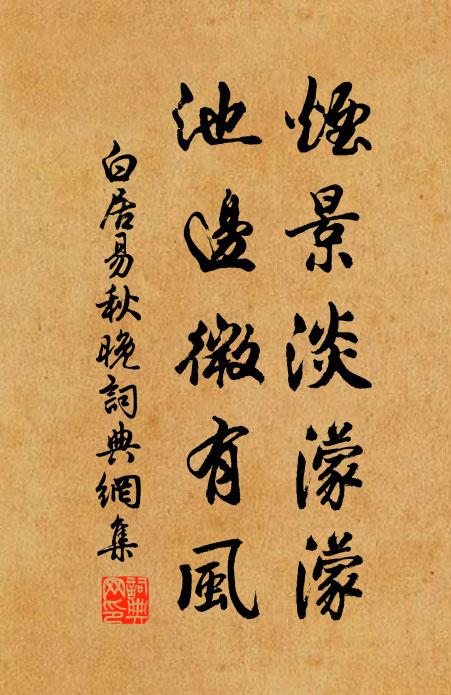 煙景淡濛濛
池邊微有風
白居易秋晚詞典網集
詞典網印